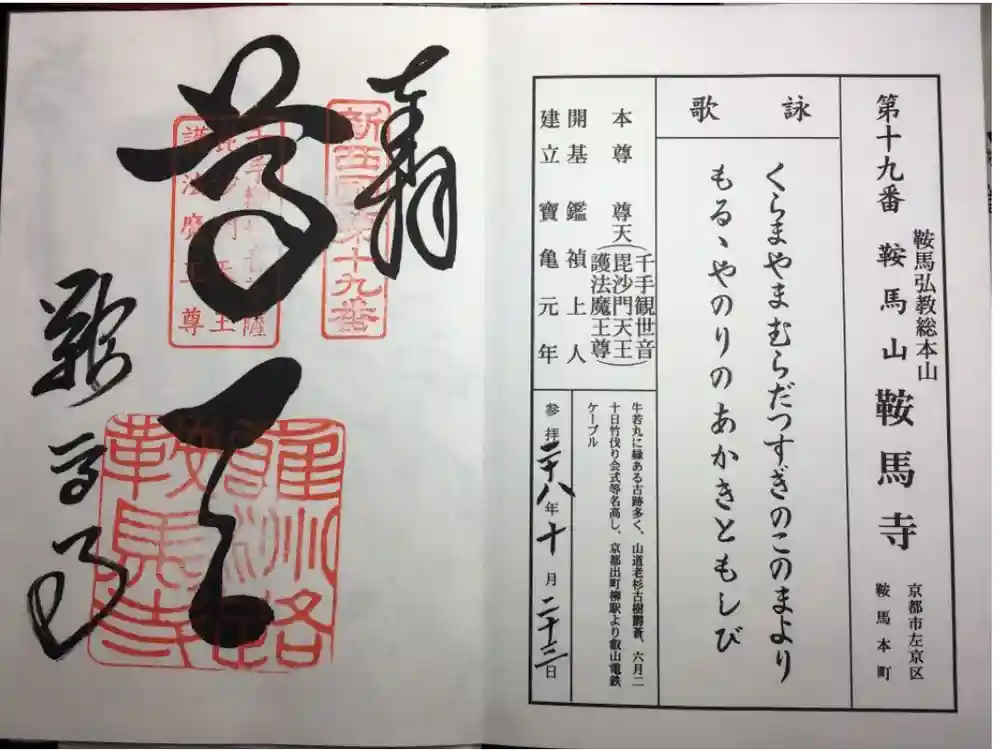 第十九番 鞍馬山 鞍馬寺
鞍馬弘教総本山
京都市左京区
鞍馬本町
詠歌
くらまやまむらだつすぎのこのまより
もるゝやのりのあかきともしび
本尊 尊天(千手観世音
毘沙門天王
護法魔王尊)
開基 鑑禎上人
建立 寶亀元年
牛若丸に縁ある古跡多く、山道老杉古樹欝蒼、六月二
十日竹伐り会式等名高し、京都出町柳駅より叡山電鉄
ケーブル
参拝 二十八年 十月 二十三日
奉拝
新西国第十九番
尊天
護法魔王尊
鞍馬寺
雍州路
鞍馬寺